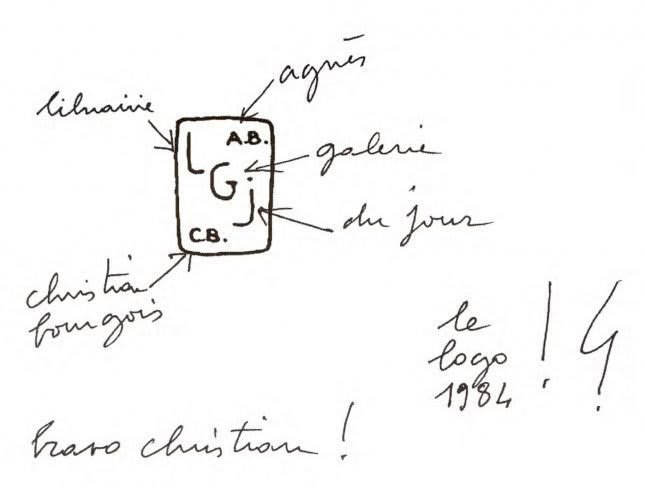 agnès
librairie
A.B.
L
galerie
G
j
du jour
C.B.
christian
bourgois
le
logo
1984
! ?
bravo christian !